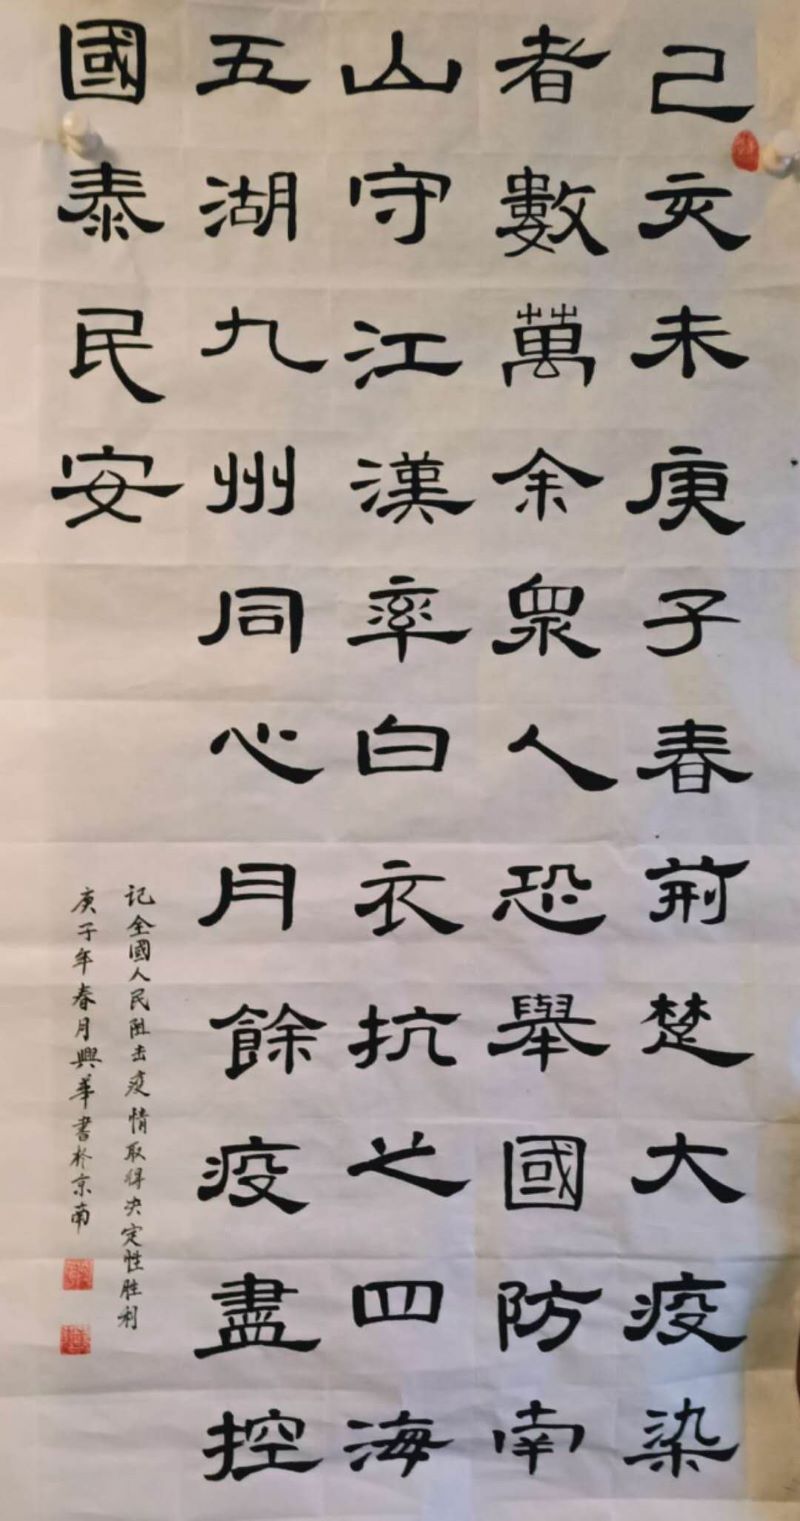 己亥末庚子春荊楚大疫染
者數萬余眾人恐舉國防南
山守江漢率白衣抗之四海
五湖九州同心月餘疫盡控
國泰民安
记全國人民阻击疫情取得决定性胜利
庚子年春月興華書於京南